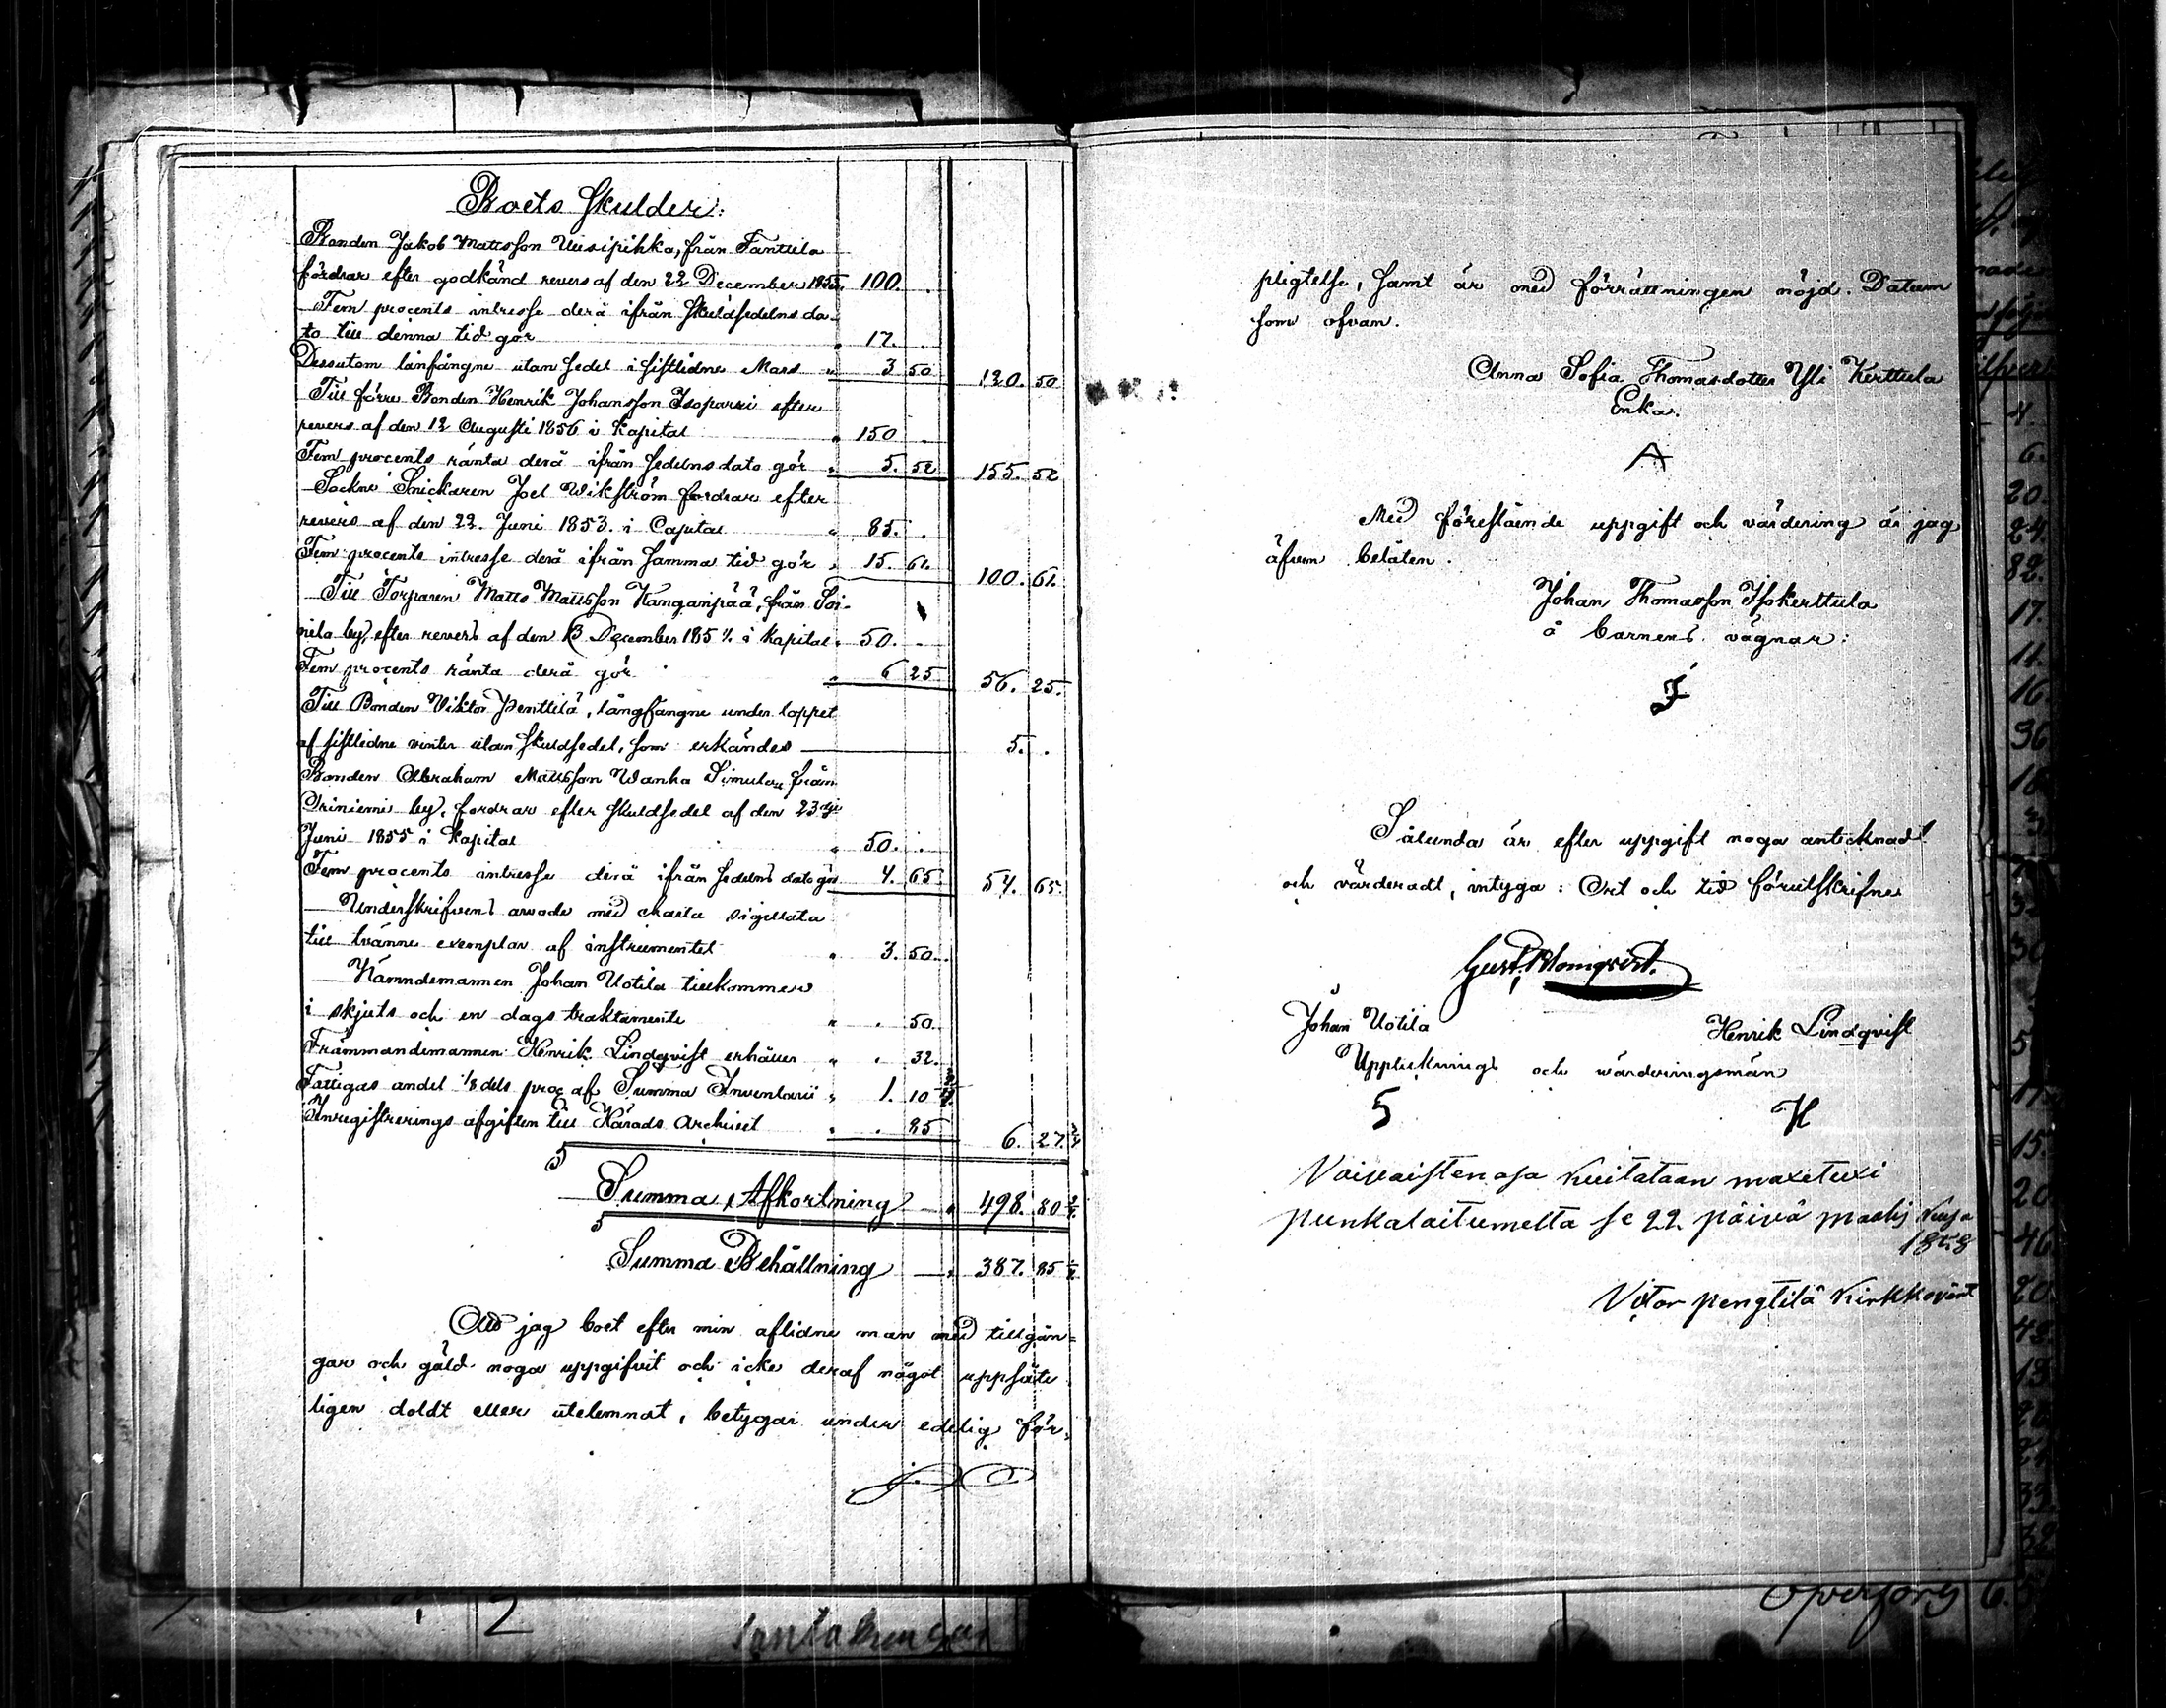 Boets Skulder:
Bonden Jakob Mattsson Uusipihka, från Tanttila
fordrar efter godkänd revers af den 22 December 1855. 100. .
Fem procents intresse derå ifrån skuldsedelns da-
to till denna tid gör " 17. .
Dessutom lånfångne utan sedel i sistlidne Mars " 3 50 120. 50
Till förre Bonden Henrik Johansson Isoparri efter
revers af den 12 Augusti 1856 i Kapital " 150 .
Fem procents ränta derå ifrån sedelns dato gör " 5. 52 155. 52
Sockne Snickaren Joel Wikström fordrar efter
revers af den 22. Juni 1853. i Capital " 85. .
Fem procents intresse derå ifrån samma tid gör " 15. 61. 100. 61.
Till Torparen Matts Mattsson Kanganpää, från Soi-
nila by, efter revers af den 13 December 185 i Kapital " 50. .
Fem procents ränta derå gör " 6 25 56. 25.
Till Bonden Viktor Penttilä, långfångne under loppet
af sistlidne vinter utan skuldsedel, som erkändes 5. .
Bonden Abraham Mattsson Wanha Simula från
by, fordrar efter skuldsedel af den 23dje
Juni 1855 i Kapital " 50. .
Fem procents intresse derå ifrån sedelns dato gör 4. 65. 54. 65.
Underskrifvens arvode med charta sigillata
till tvänne exemplar af instrumentet " 3. 50.
Nämndemannen Johan Uotila tillkommer
i skjuts och en dags traktamente " . 50.
Främmandemannen Henrik Lindqvist erhåller " . 32.
Fattigas andel 1/8 dels proc af Summa Inventarii " 1. 10
Inregistrerings afgiften till Härads Archivet " . 85 6. 27. 3/4
Summa Afkortning " 498. 80 3/4.
Summa Behållning " 387. 85 1/4.
Att jag boet efter min aflidne man med tillgån-
gar och gäld noga uppgifvit och icke deraf något uppsåte
ligen doldt eller utelemnat, betygar under edelig för-
pligtelse, samt är med förrättningen nöjd. Datum
som ofvan.
Anna Sofia Thomasdotter Yli Kerttula
Enka.
A
Med förestående uppgift och värdering är jag
äfven belåten.
Johan Thomasson Isokerttula
å barnens vägnar:
Sålunda är efter uppgift noga antecknadt
och värderadt, intyga: Ort och tid förutskrifne
Gust. Blomqvist.
Johan Uotila Henrik Lindqvist
Upptecknings och wärderingsmän
5 H
Vaivaisten osa kuitataan maxetuxi
punkalaitumella se 22 päivä maalis kuusa
1858
Vitor pengtilä kirkkovärt
2